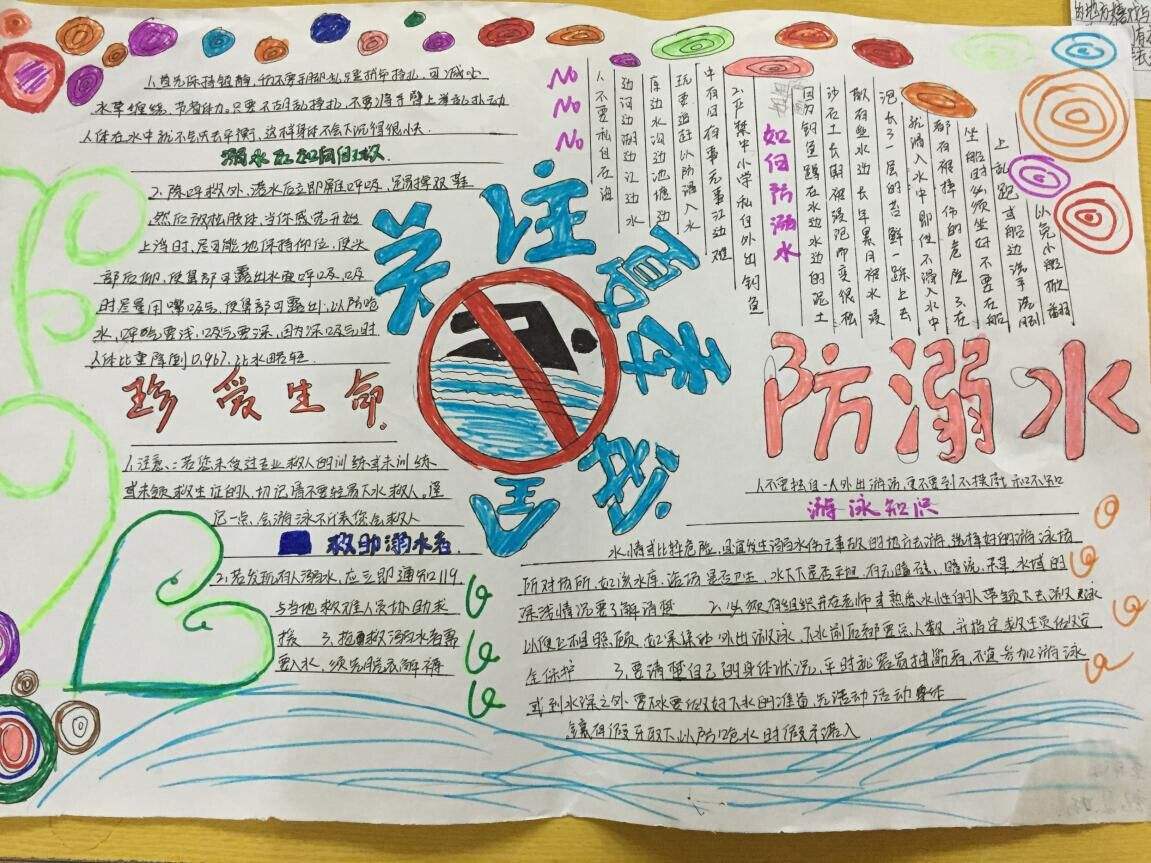 1.首先保持镇静,切不要手脚乱
水草缠绕,节省体力.只要不胡乱挣扎,不要将手臂上举乱扑动
人体在水中就不会失去平衡.这样身体不会下沉得很快.
溺水后如何自救.
2.除呼救外,落水后立即屏呼吸,踢掉双鞋
然后放松肢体,当你感觉开始
上浮时,尽可能地保持仰位,使头
部后仰,使鼻部可露出水面呼吸,吸
时尽量用嘴吸气,使鼻部可露出,以防呛
水,呼吸要浅,吸气要深,因为深吸气时
人体比重降到0.967,比水略轻.
珍爱生命
1.注意:若您未受过专业救人的训练或未训练
或未领救生证的人,切记请不要轻易下水救人。谨
记一点,会游泳不代表您会救人
救助溺水者.
2.若发现有人溺水,应立即通知119
与当地救难人员协助求
援 3.抢救溺水者需
要入水,须先脱衣解裤
关注
夏季
安全
No
No
No
人不要私自在海
边河边湖边江边水
库边水沟边池塘边
玩耍追赶以防滑入水
中有日有事无事江边难
2.严禁中小学私自外出钓鱼
如何防溺水
因为钓鱼蹲在水边水边的泥土
沙石土长期被浸泡而变很松
散有些水边长年累月被水浸
泡长了一层的苔鲜一踩上去
就滑入水中即使不滑入水中
都有被摔伤的危险3.在
坐船时必须坐好不要在船
上乱跑或船边洗手洗脚
以免小船掀翻
防溺水
人不要独自一人外出游泳,更不要到不摸底和不知
游泳知识
水情或比较危险,且宜发生溺水伤亡事故的地方去游,选择好的游泳场
所对场所,如该水库、浴场是否卫生,水下是否平坦.有无暗礁,暗流,杂草,水域的
深浅情况要了解清楚 2.必须有组织并在老师或熟悉水性的人带领下去游泳
以便上相照顾,如果集体外出游泳,下水前后都要点人数,并指定救生员做安
全保护 3.要清楚自己的身体状况,平时就容易抽筋者,不宜参加游泳
或到水深之外.要下水要做好下水的准备,先活动活动身体
镶有假牙取下以防呛水时假牙落入